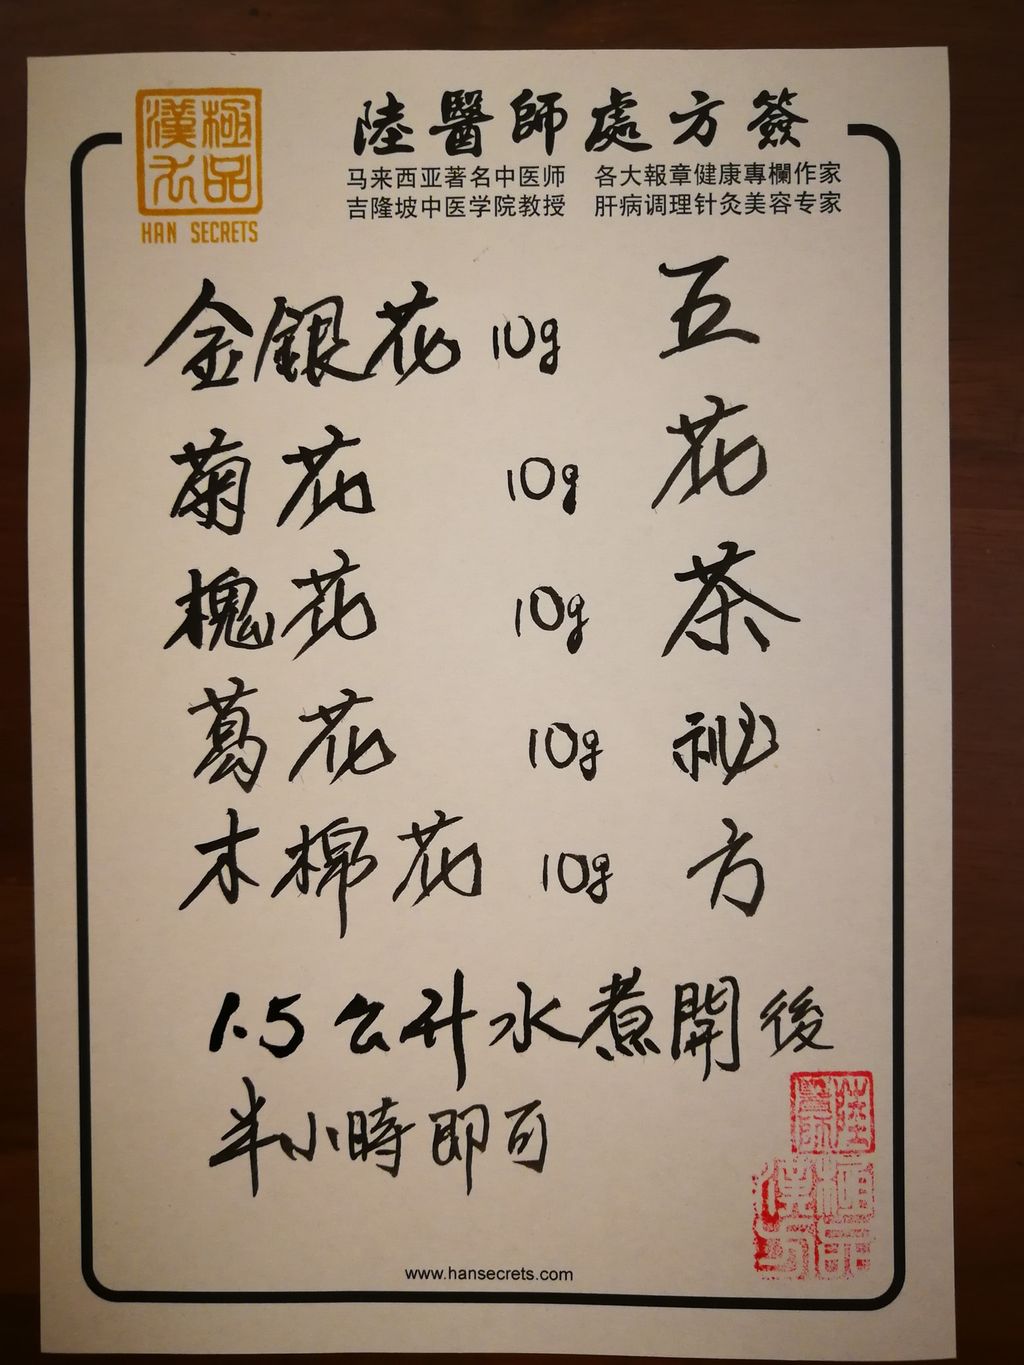 極品
漢方
HAN SECRETS
陸醫師處方簽
马来西亚著名中医师 各大報章健康專欄作家
吉隆坡中医学院教授 肝病调理针灸美容专家
五花茶秘方
金銀花 10g
菊花 10g
槐花 10g
葛花 10g
木棉花 10g
1.5公升水煮開後
半小時即可
極品
漢方
www.hansecrets.com